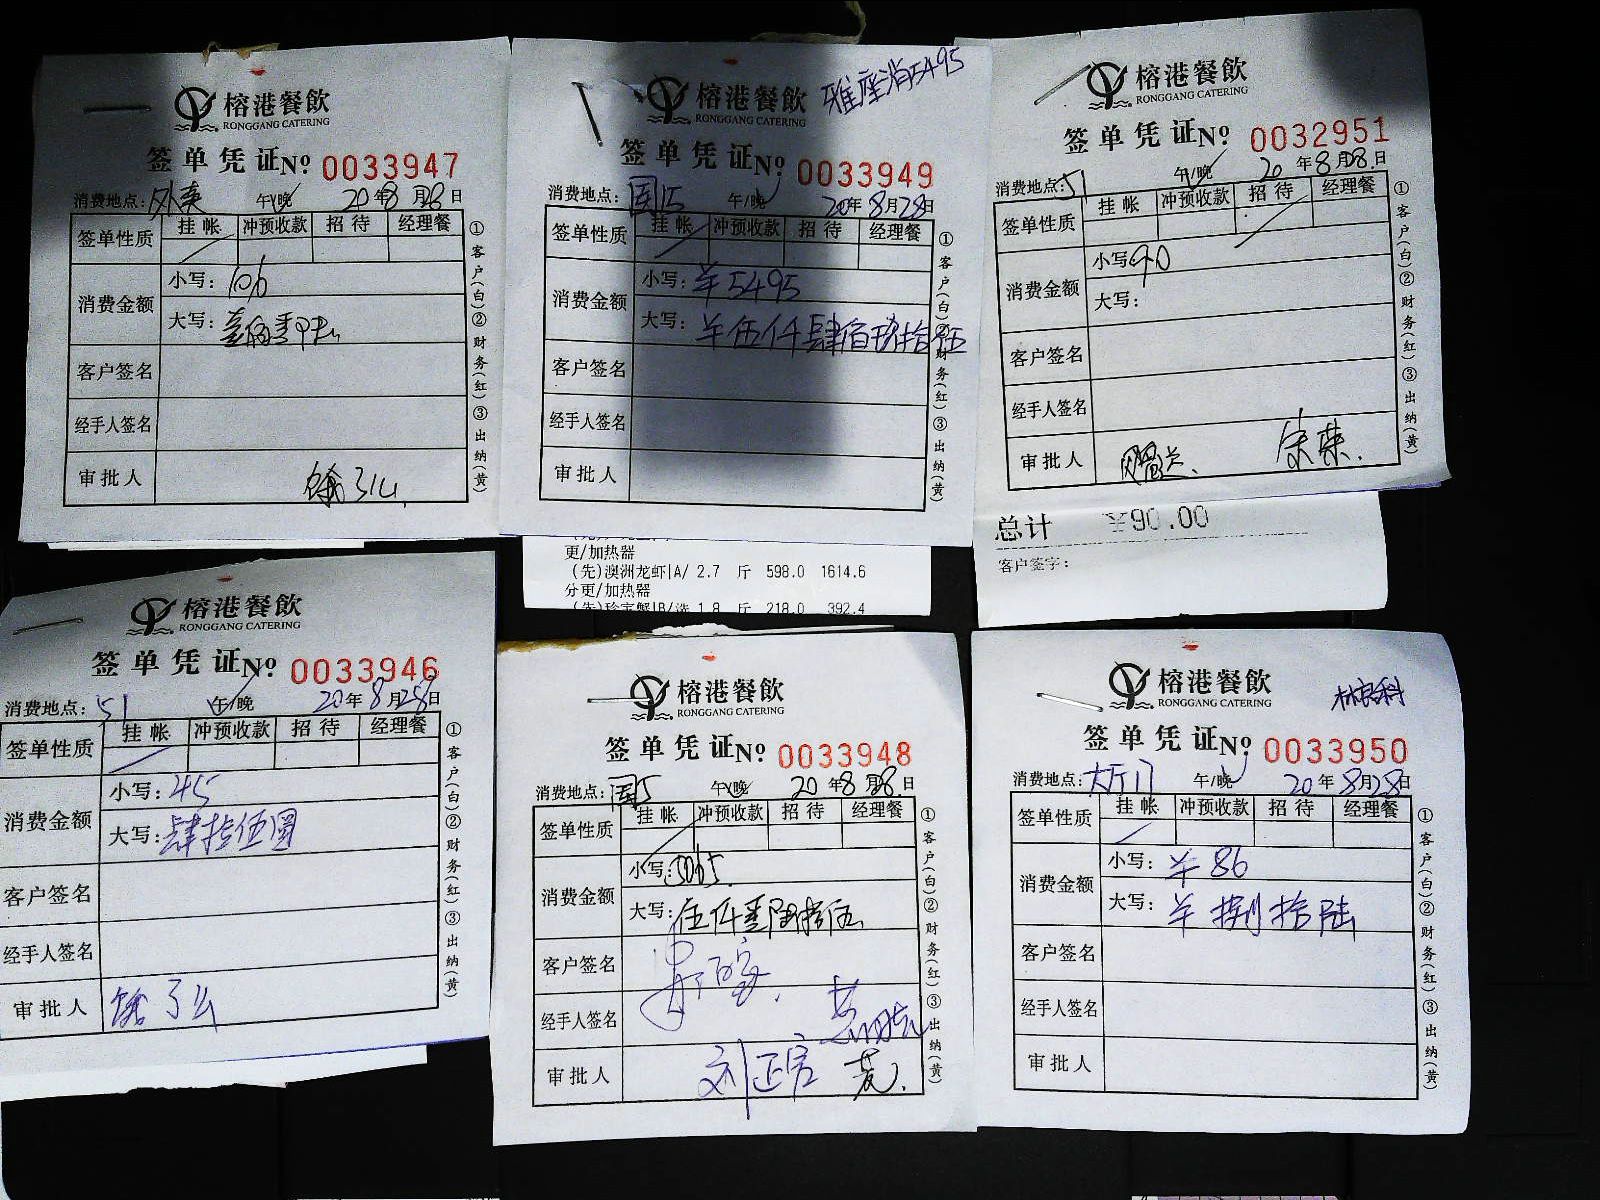 榕港餐飲
RONGGANG CATERING
签单凭证 № 0033947
消费地点: 午/晚 20年8月28日
签单性质 挂帐 冲预收款 招待 经理餐
消费金额
小写: 106
大写:
客户签名
经手人签名
审批人
①客户(白)②财务(红)③出纳(黄)
雅座消5495
榕港餐飲
RONGGANG CATERING
签单凭证 № 0033949
消费地点: 国15 午/晚 20年8月28日
签单性质 挂帐 冲预收款 招待 经理餐
消费金额
小写: ¥5495
大写: ¥伍仟肆佰玖拾伍
客户签名
经手人签名
审批人
①客户(白)②财务(红)③出纳(黄)
更/加热器
(先)澳洲龙虾|A/ 2.7 斤 598.0 1614.6
分更/加热器
(先)珍宝蟹|B/选 1.8 斤 218.0 392.4
榕港餐飲
RONGGANG CATERING
签单凭证 № 0032951
消费地点: 51 午/晚 20年8月28日
签单性质 挂帐 冲预收款 招待 经理餐
消费金额
小写: 90
大写:
客户签名
经手人签名
审批人
①客户(白)②财务(红)③出纳(黄)
总计 ¥90.00
客户签字:
榕港餐飲
RONGGANG CATERING
签单凭证 № 0033946
消费地点: 51 午/晚 20年8月28日
签单性质 挂帐 冲预收款 招待 经理餐
消费金额
小写: 45
大写: 肆拾伍圆
客户签名
经手人签名
审批人
①客户(白)②财务(红)③出纳(黄)
榕港餐飲
RONGGANG CATERING
签单凭证 № 0033948
消费地点: 国5 午/晚 20年8月28日
签单性质 挂帐 冲预收款 招待 经理餐
消费金额
小写: 5065
大写: 伍仟零陆拾伍
客户签名
经手人签名
审批人
①客户(白)②财务(红)③出纳(黄)
榕港餐飲
RONGGANG CATERING
签单凭证 № 0033950
消费地点: 大厅17 午/晚 20年8月28日
签单性质 挂帐 冲预收款 招待 经理餐
消费金额
小写: ¥86
大写: ¥捌拾陆
客户签名
经手人签名
审批人
①客户(白)②财务(红)③出纳(黄)